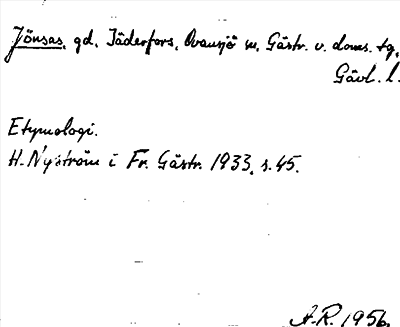 Jönsas, gd, Jäderfors, Ovansjö sn, Gästr. v. doms. tg,
Gävl. l.
Etymologi.
H. Nyström i Fr. Gästr. 1933, s. 45.
A.R. 1956.